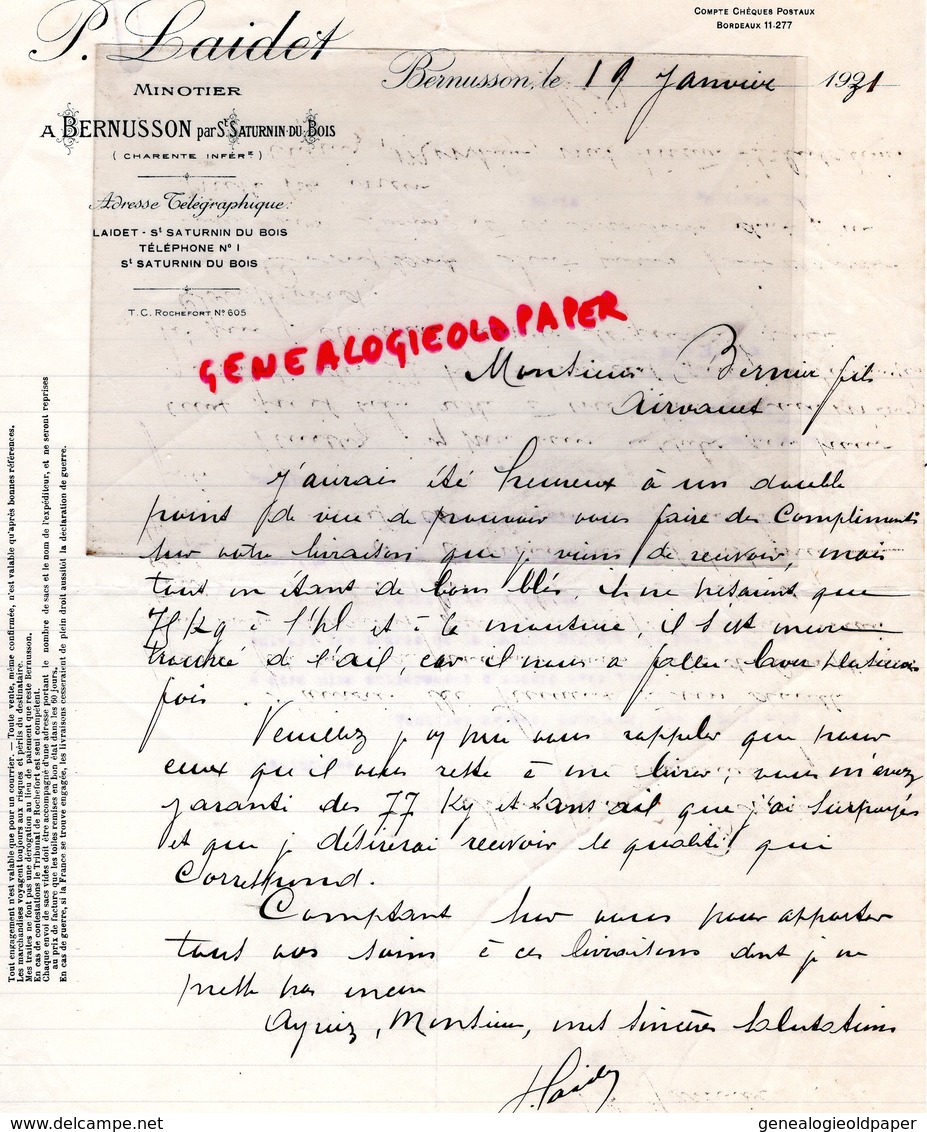 COMPTE CHÈQUES POSTAUX
BORDEAUX 11-277
P. Laidet
MINOTIER
A BERNUSSON par St SATURNIN-DU-BOIS
( CHARENTE INFÉRre )
Adresse Télégraphique:
LAIDET - St SATURNIN DU BOIS
TÉLÉPHONE No 1
St SATURNIN DU BOIS
T. C. ROCHEFORT No 605
Bernusson, le 19 Janvier 1931
GENEALOGIEOLDPAPER
Monsieur Bernier fils
Airvault
J'aurais été heureux à un double
point de vue de pouvoir vous faire des Compliments
sur votre livraison que je viens de recevoir, mais
tout en étant de bons blés, ils ne pesaient que
75 kg à l'hl et à la mouture, il s'est
trouvé d l'ail, car il nous a fallu laver plusieurs
fois.
Veuillez je vous rappeler que pour
ceux que il vous reste à me livrer, vous m'avez
garanti des 77 Kg et sans ail que j'ai surpayés
et que je désirerai recevoir la qualité qui
Correspond.
Comptant sur vous pour apporter
tous vos soins à ces livraisons dont je ne
presse pas
Agréez, Monsieur, mes sincères salutations
P. Laidet
Tout engagement n'est valable que pour un courrier. — Toute vente, même confirmée, n'est valable qu'après bonnes références.
Les marchandises voyagent toujours aux risques et périls du destinataire.
Mes traites ne font pas une dérogation au lieu de paiement que reste Bernusson.
En cas de contestations le Tribunal de Rochefort est seul compétent.
Chaque envoi de sacs vides doit être accompagné d'une adresse portant le nombre de sacs et le nom de l'expéditeur, et ne seront reprises
au prix de facture que les toiles remises en bon état dans les 60 jours.
En cas de guerre, si la France se trouve engagée, les livraisons cesseraient de plein droit aussitôt la déclaration de guerre.
delcampe.net
genealogieoldpaper